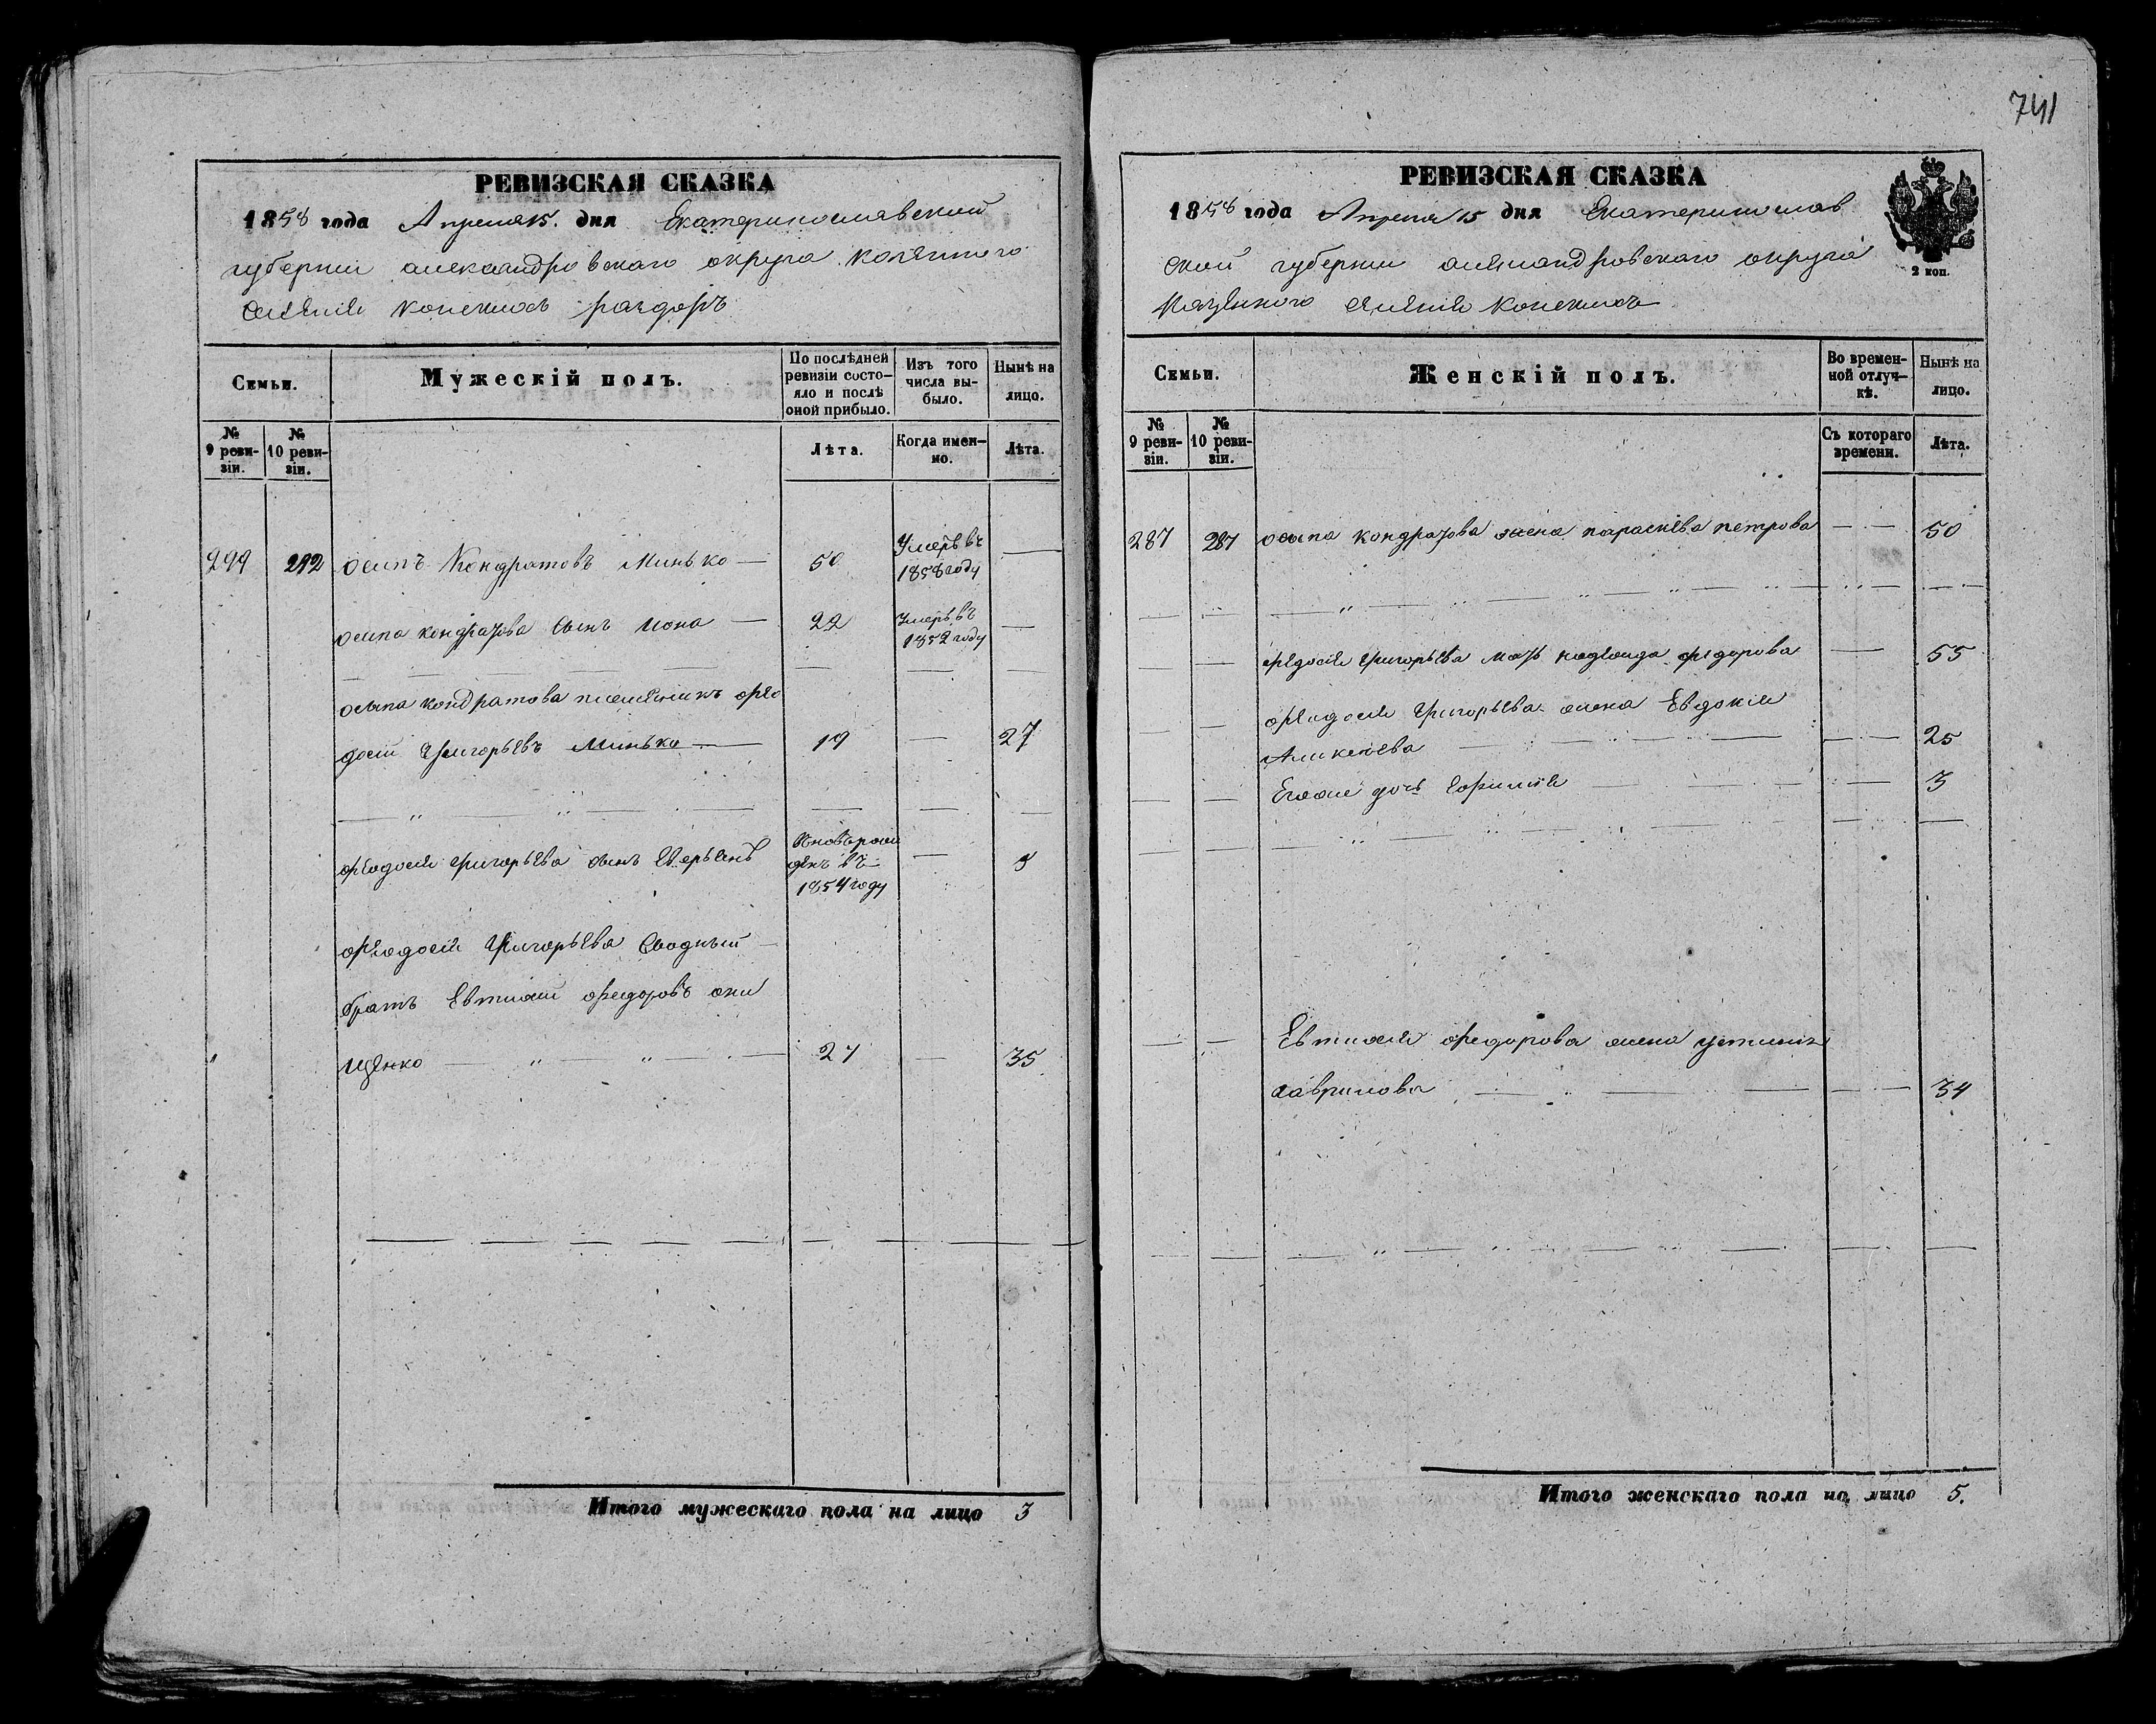 741
РЕВИЗСКАЯ СКАЗКА
1858 года Апреля 15. дня Екатеринославской
губернии александровскаго округа казенного
селения конскихъ раздоръ
Семьи.
Мужескій полъ.
По послѣдней ревизіи состояло и послѣ оной прибыло.
Изъ того числа выбыло.
Нынѣ на лицо.
№ 9 ревизіи.
№ 10 ревизіи.
Лѣта.
Когда именно.
Лѣта.
292 осипъ Кондратовъ Минько — 50 Умеръ въ 1858 году —
осипа кондратова сынъ иона — 22 Умеръ въ 1852 году —
осипа кондратова племяникъ фео
досий Григорьевъ Минько — 19 — 27
феодосия григорьева сынъ
Вновь рож
денъ въ
1854 году
феодосия Григорьева Сводный
братъ Евтихий федоровъ они
щенко — 27 — 35
Итого мужескаго пола на лицо 3
РЕВИЗСКАЯ СКАЗКА
1858 года Апреля 15 дня Екатеринослав
ской губернии александровскаго округа
Казенного селения конскихъ
2 коп.
Семьи.
Женскій полъ.
Во временной отлучкѣ.
Нынѣ на лицо.
№ 9 ревизіи.
№ 10 ревизіи.
Съ котораго времени.
Лѣта.
287 287 осипа кондратова жена параскева петрова — 50
федосия григорьева мать федорова — 55
феодосия Григорьева жена Евдокия
Аликсеева — 25
Егоже дочь — 3
Евтихия федорова жена устинья
гаврилова — 34
Итого женскаго пола на лицо 5.